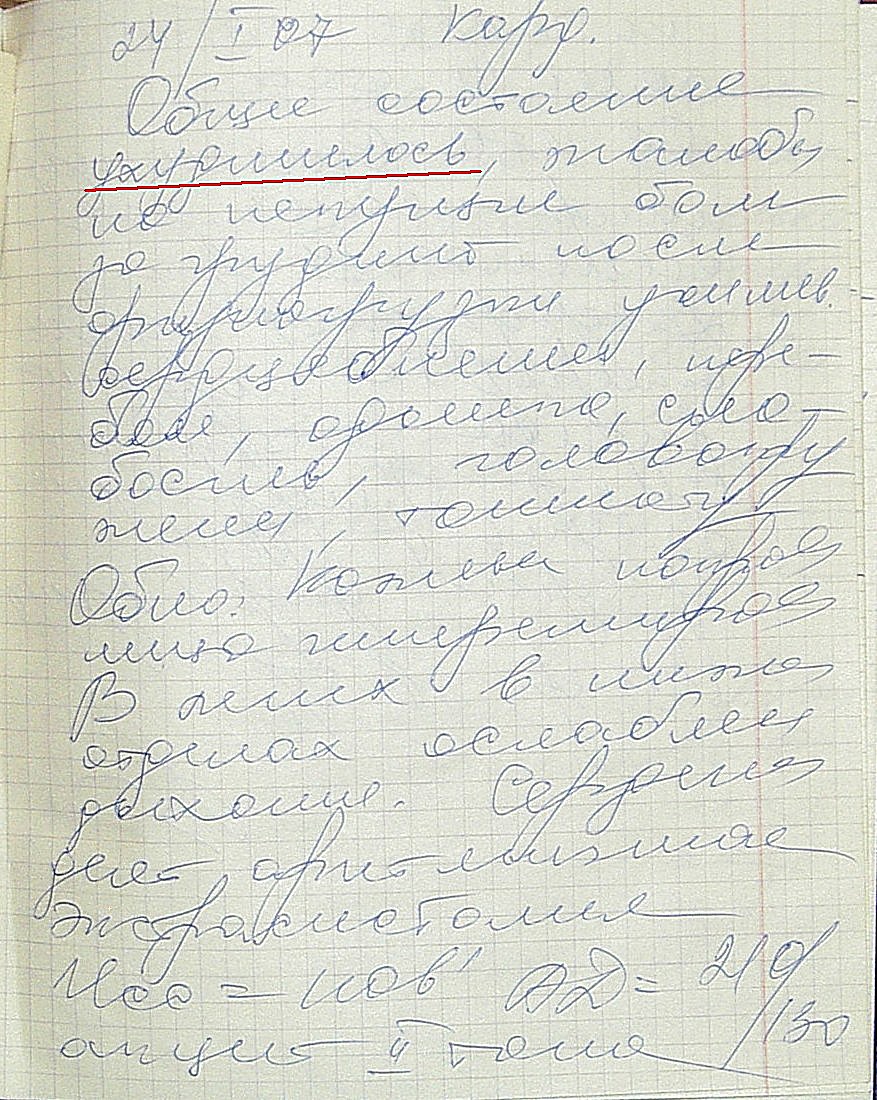 24/I 07 Кард.
Общее состояние
ухудшилось, жалобы
на интенсивные боли
за грудиной после
физнагрузки усилив.
сердцебиение, пере-
бои, одышка, сла-
бость, головокру
жение, тошноту
Обно. Кожные покров
лица гиперемиров
В легких в нижн
отделах ослаблен
дыхание. Сердечн
деят аритмичная
экстрасистолия
Чсс = АД = 210/130
акцент II тона